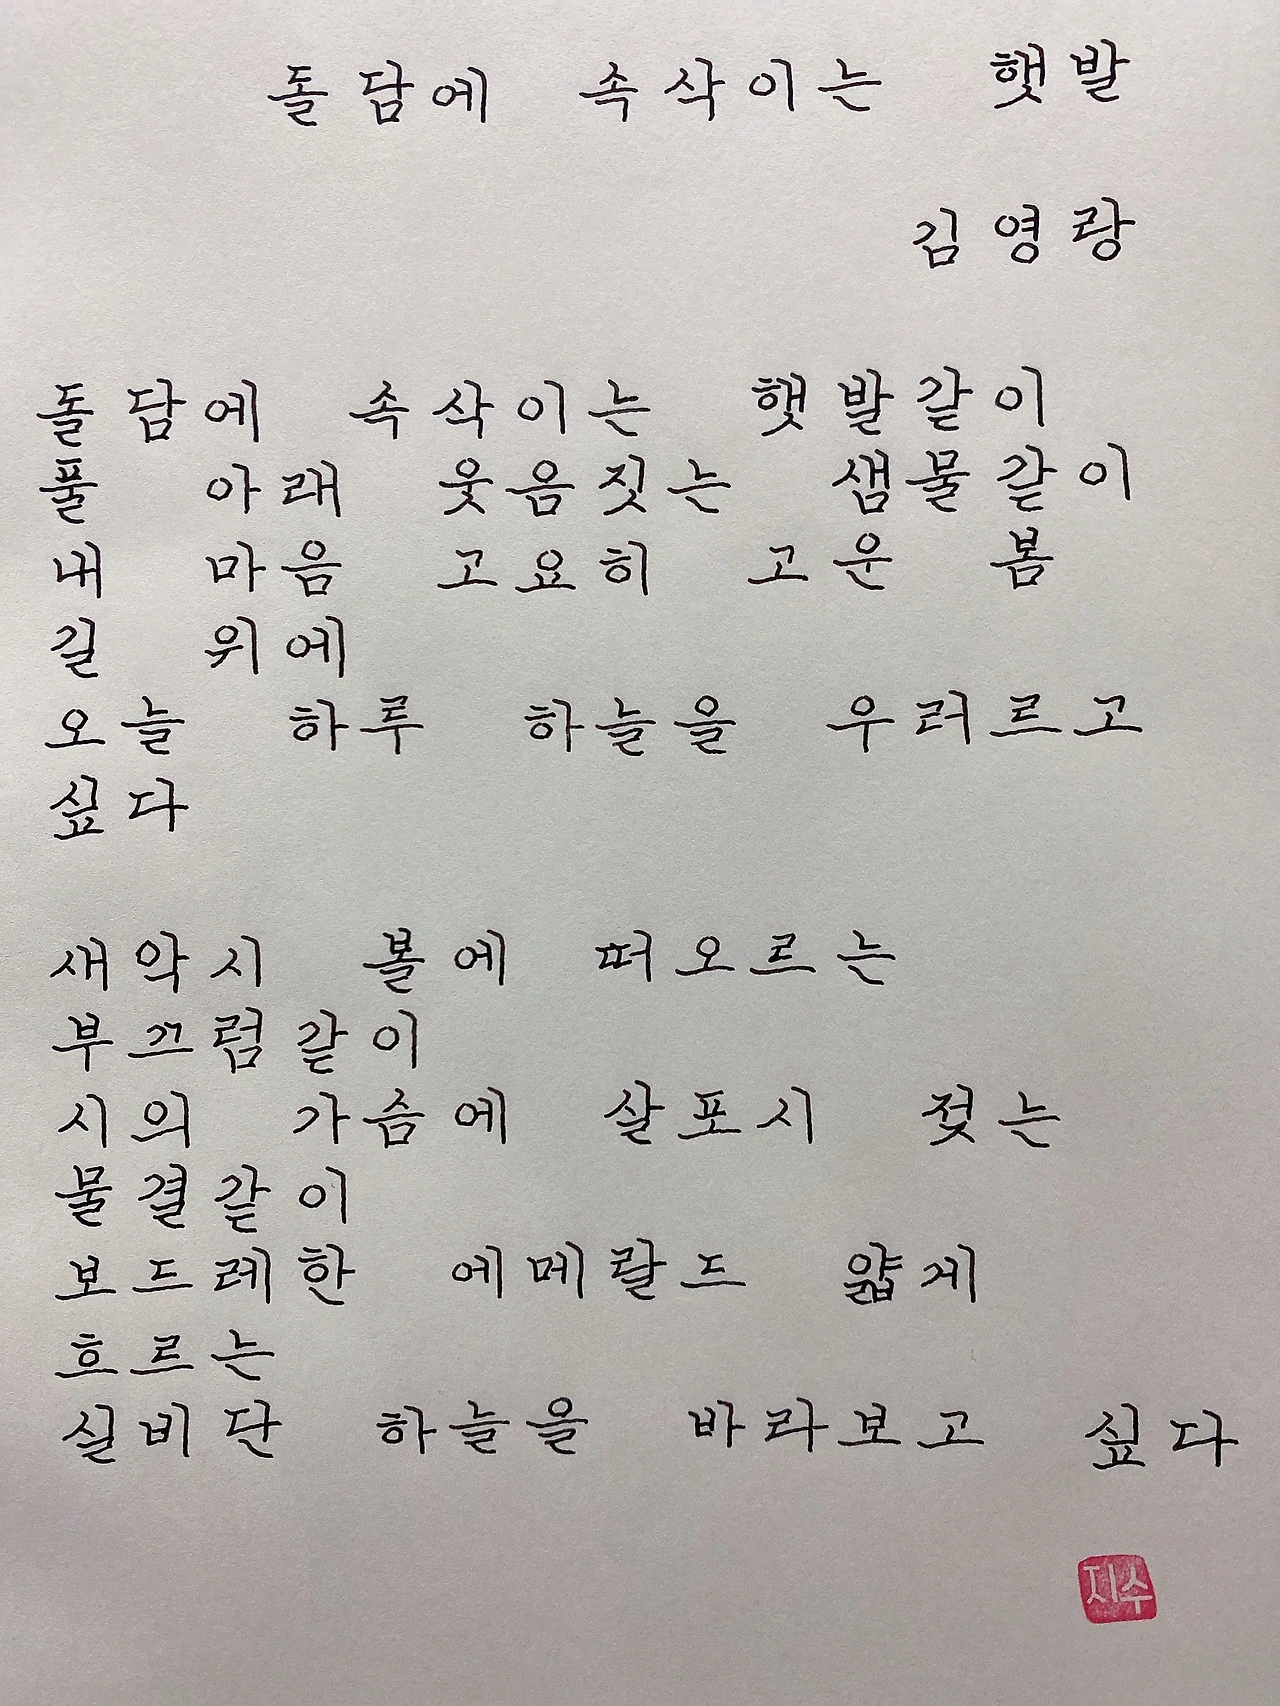 돌담에 속삭이는 햇발
김영랑
돌담에 속삭이는 햇발같이
풀 아래 웃음짓는 샘물같이
내 마음 고요히 고운 봄
길 위에
오늘 하루 하늘을 우러르고
싶다
새악시 볼에 떠오르는
부끄럼같이
시의 가슴에 살포시 젖는
물결같이
보드레한 에메랄드 얇게
흐르는
실비단 하늘을 바라보고 싶다
지수